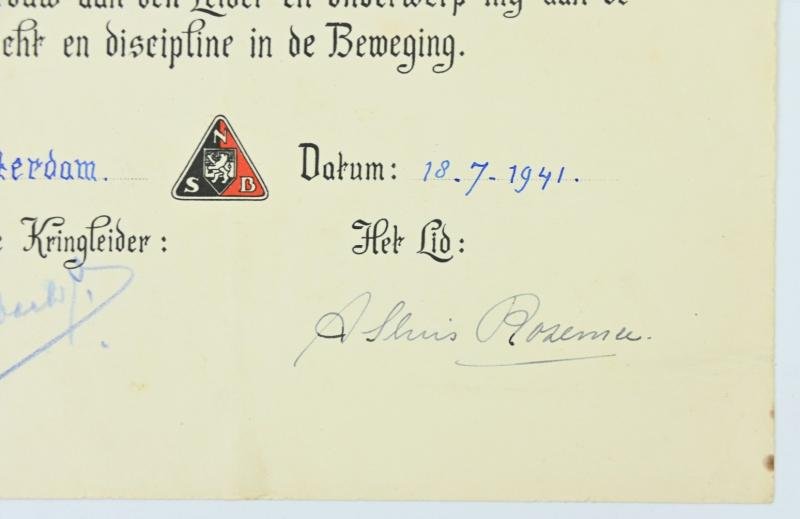 aan den Leider en onderwerp mij aan de
cht en discipline in de Beweging.
terdam.
N
S B
Datum: 18.7.1941.
Kringleider: Het Lid:
A Sluis